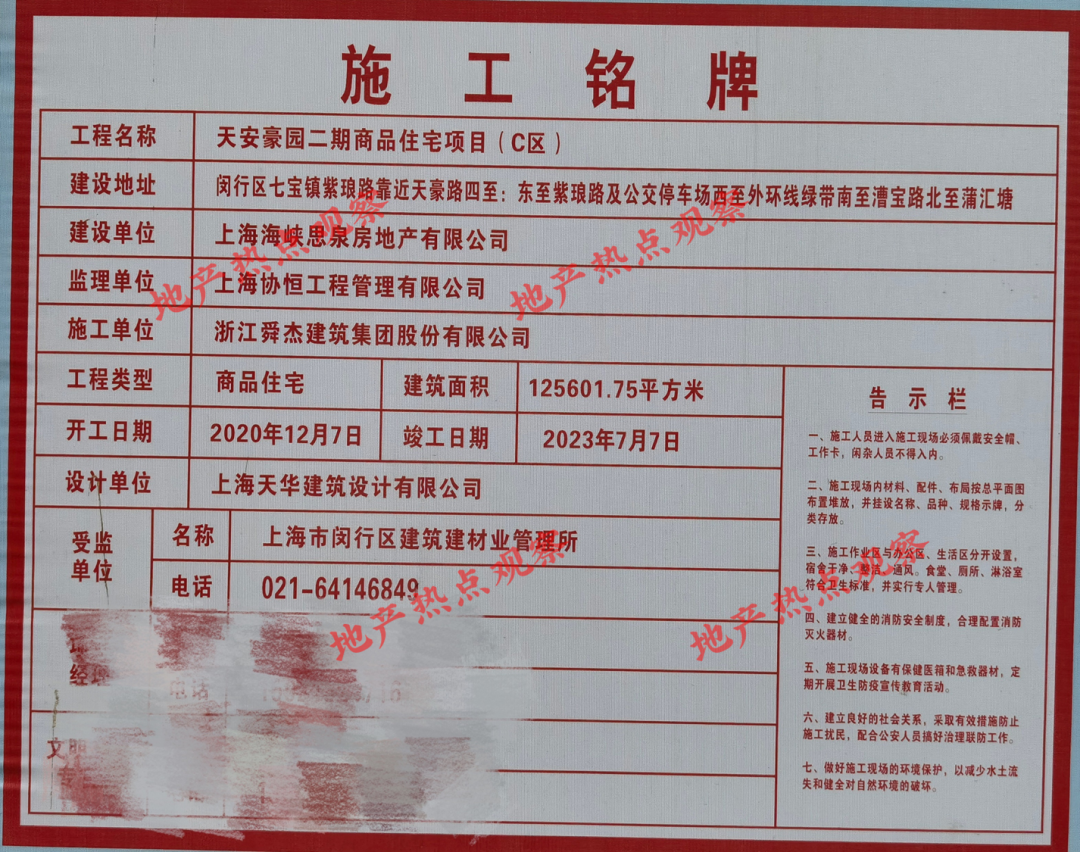 施工铭牌
工程名称 天安豪园二期商品住宅项目（C区）
建设地址 闵行区七宝镇紫琅路靠近天豪路四至：东至紫琅路及公交停车场西至外环线绿带南至漕宝路北至蒲汇塘
建设单位 上海海峡思泉房地产有限公司
监理单位 上海协恒工程管理有限公司
施工单位 浙江舜杰建筑集团股份有限公司
工程类型 商品住宅 建筑面积 125601.75平方米
开工日期 2020年12月7日 竣工日期 2023年7月7日
设计单位 上海天华建筑设计有限公司
受监单位 名称 上海市闵行区建筑建材业管理所
电话 021-64146849
经理 电话
文明
告示栏
一、施工人员进入施工现场必须佩戴安全帽、
工作卡，闲杂人员不得入内。
二、施工现场内材料、配件、布局按总平面图
布置堆放，并挂设名称、品种、规格示牌，分
类存放。
三、施工作业区与办公区、生活区分开设置，
宿舍干净、整洁、通风。食堂、厕所、淋浴室
符合卫生标准，并实行专人管理。
四、建立健全的消防安全制度，合理配置消防
灭火器材。
五、施工现场设备有保健医箱和急救器材，定
期开展卫生防疫宣传教育活动。
六、建立良好的社会关系，采取有效措施防止
施工扰民，配合公安人员搞好治理联防工作。
七、做好施工现场的环境保护，以减少水土流
失和健全对自然环境的破坏。
地产热点观察
地产热点观察
地产热点观察
地产热点观察